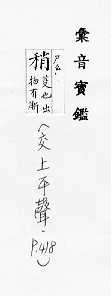 彙音寶鑑
稍
㫼也出
物有漸
(交上平聲)
P.418